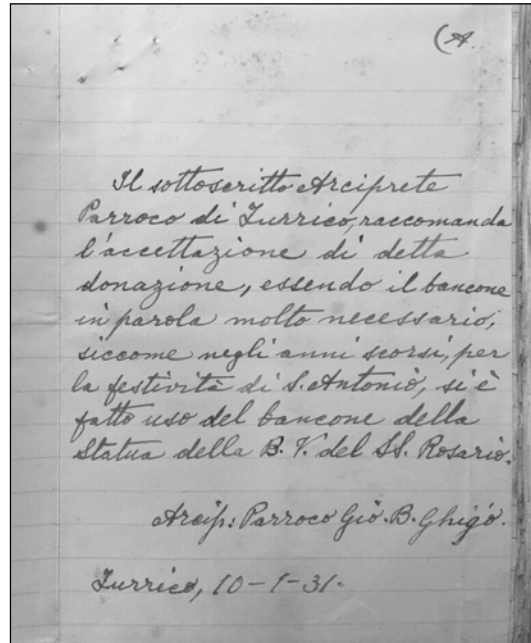 (A
Il sottoscritto Arciprete
Parroco di Zurrico, raccomanda
l'accettazione di detta
donazione, essendo il bancone
in parola molto necessario,
siccome negli anni scorsi, per
la festività di S. Antonio, si è
fatto uso del bancone della
Statua della B. V. del SS. Rosario.
Arcip: Parroco Giò. B. Ghigo.
Zurrico, 10-1-31.